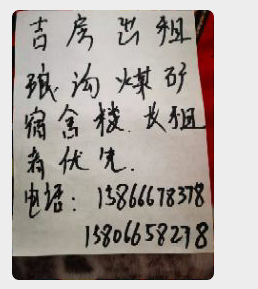 吉房出租
琅沟煤矿
宿舍楼.长租
者优先.
电话：15866678378
15806658278